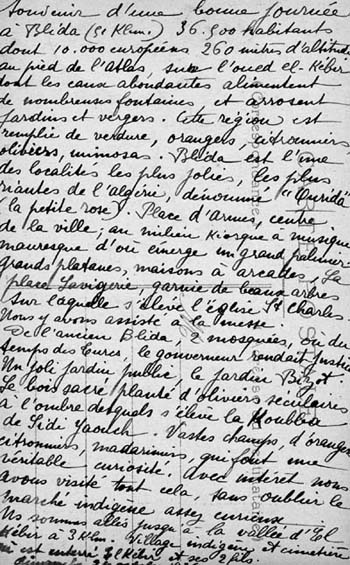 Souvenir d'une bonne journée
à Blida (51 Klm.) 36.500 habitants
dont 10.000 européens 260 mètres d'altitude
au pied de l'Atlas, sur l'oued el-Kéber
dont les eaux abondantes alimentent
de nombreuses fontaines, et arrosent
jardins et vergers. Cette région est
remplie de verdure, orangers, citronniers,
oliviers, mimosas. Blida est l'une
des localités les plus jolies, les plus
riantes de l'algérie, dénommé "Ourida"
(la petite rose). Place d'Armes, centre
de la ville; au milieu Kiosque à musique
mauresque d'où émerge un grand palmier
grands platanes, maisons à arcades, La
place Lavigerie, garnie de beaux arbres
sur laquelle s'élève l'église St Charles.
Nous y avons assisté à la messe.
De l'ancien Blida, 2 mosquées, où du
temps des Turcs, le gouverneur rendait justice
Un joli jardin public, le jardin Bizot.
Le bois sacré planté d'oliviers séculaires
à l'ombre desquels s'élève la Koubba
de Sidi Yacoub. Vastes champs, d'orangers
citronniers, madariniers, qui font une
véritable curiosité. Avec intérêt nous
avons visité tout cela, sans oublier le
marché indigène assez curieux
Ns sommes allés jusqu'à la vallée d'El
Kéber à 3 Klm. Village indigène et cimetière
où est enterré El Kébir et ses 2 fils.